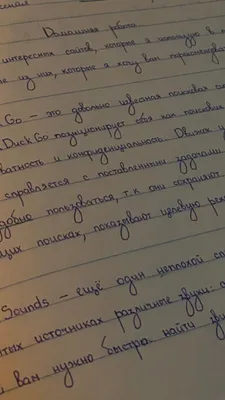 Домашняя работа
интересных сайтов, которые я использую в п
из них, которые я хочу вам порекомендовать
Go – это довольно известная поисковая си
DuckGo позиционирует себя как поисковик
ватность и конфиденциальность. Движок у
справляется с поставленными задачами.
удобно пользоваться, т.к они сохраняют
ших поисках, показывают целевую рек
Sounds – ещё один неплохой са
тых источниках различные звуки: о
и вам нужно быстро найти зву